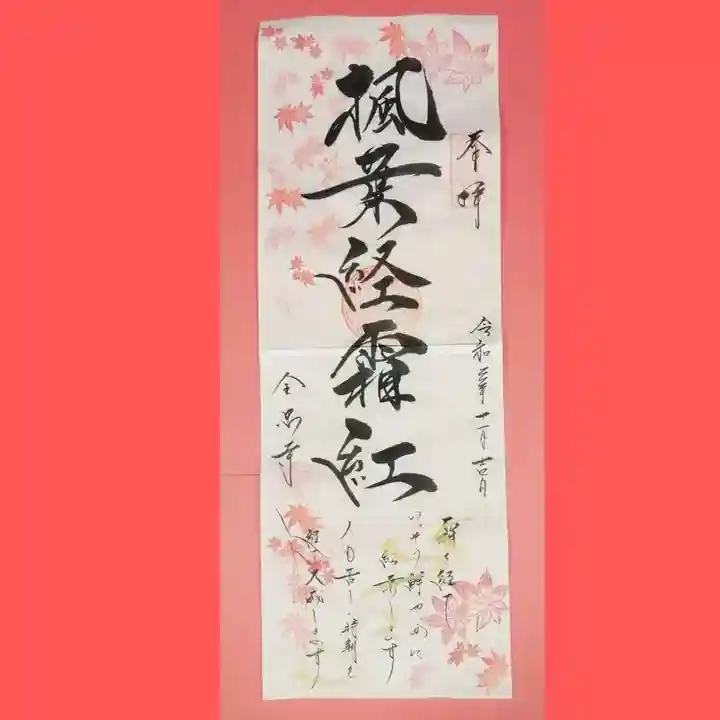 奉拝
令和三年十一月吉日
楓葉経霜紅
全忠寺
霜を経て
いっそう鮮やかに
紅葉します
人も苦しい時期を
経て大成します